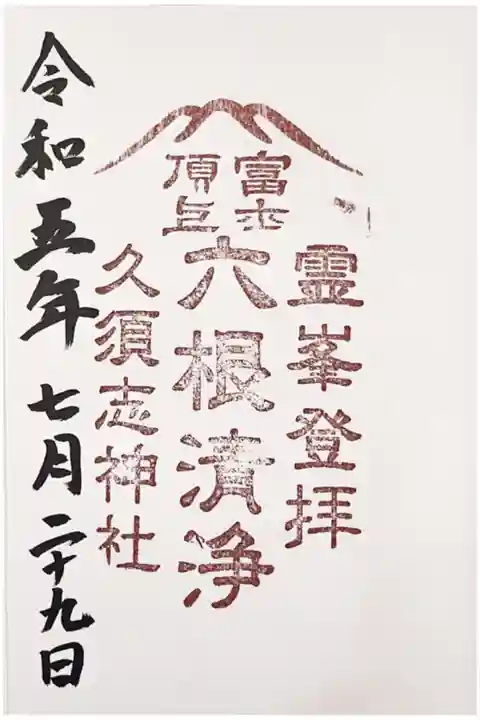 霊峯登拝
富士
頂上
六根清浄
久須志神社
令和五年七月二十九日